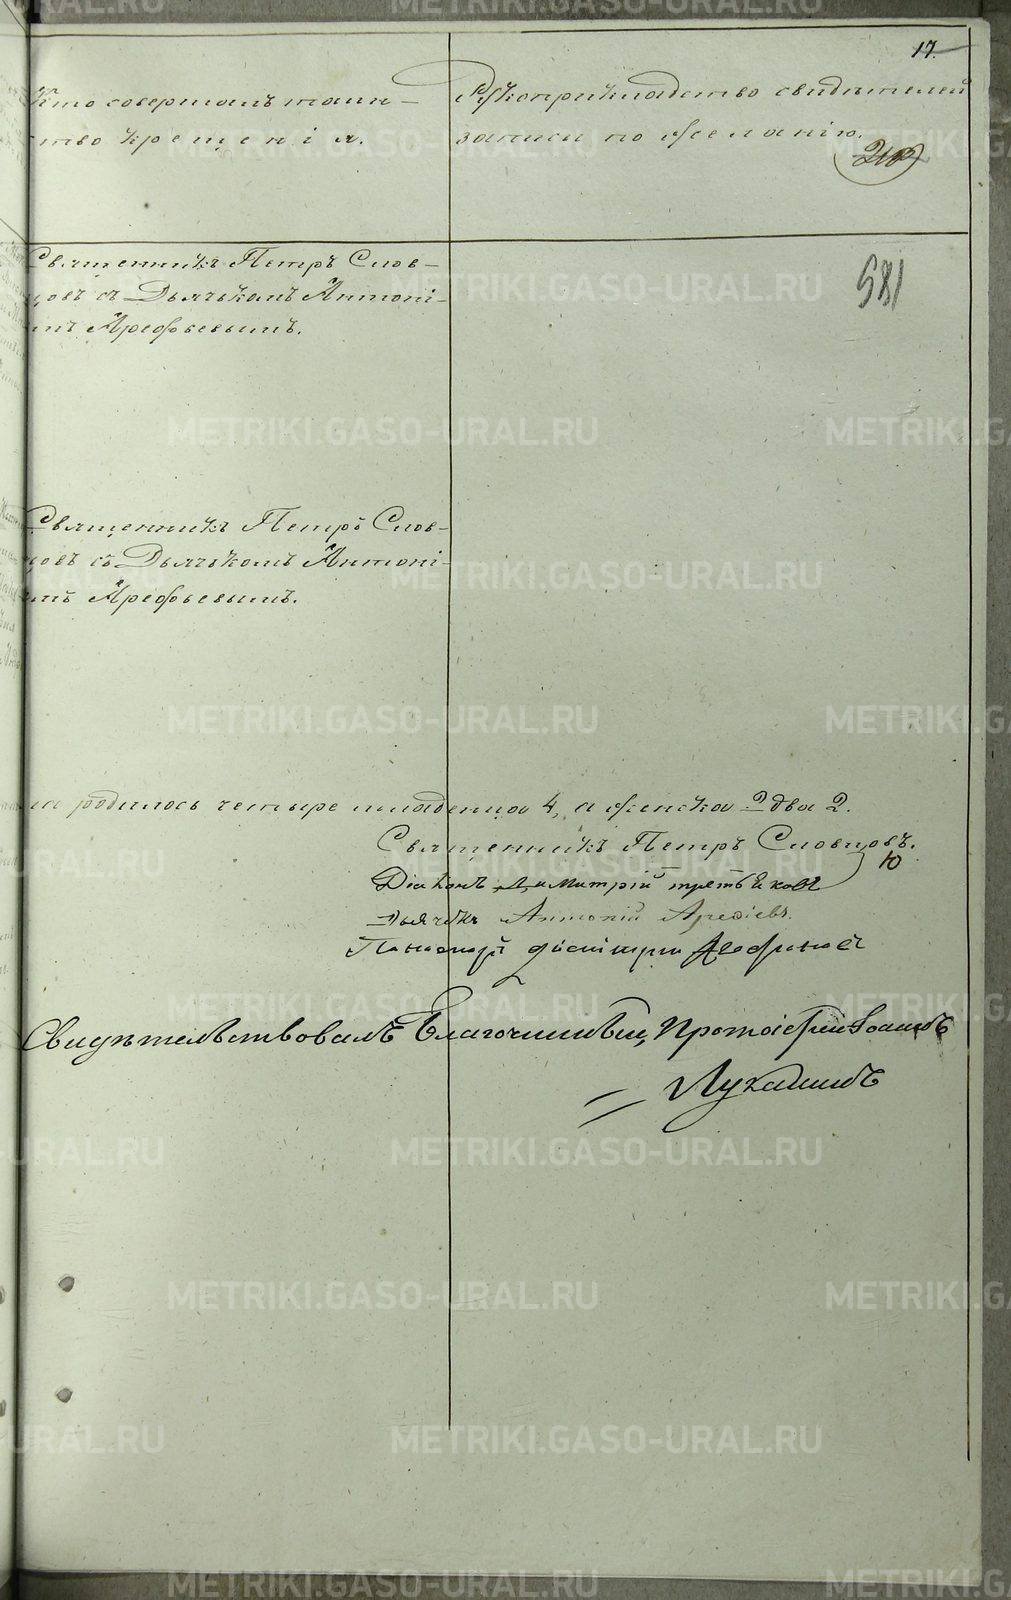 17.
Кто совершалъ таин-
ство крещенія.
Рукоприкладство свидѣтелей
записи по желанію.
210
581
Священникъ Петръ Слов-
цовъ съ Дьячкомъ Антоні-
мъ Арефьевымъ.
Священникъ Петръ Слов-
цовъ съ Дьячкомъ Антоні-
мъ Арефьевымъ.
родилось четыре младенца 4, а женска два 2.
Священникъ Петръ Словцовъ.
Діаконъ Димитрій Третьяковъ
Дьячекъ Антоній Арефіевъ.
Пономарь
Свидѣтельствовалъ Благочинный, Протоіерей Іоаннъ
Лукашинъ
METRIKI.GASO-URAL.RU